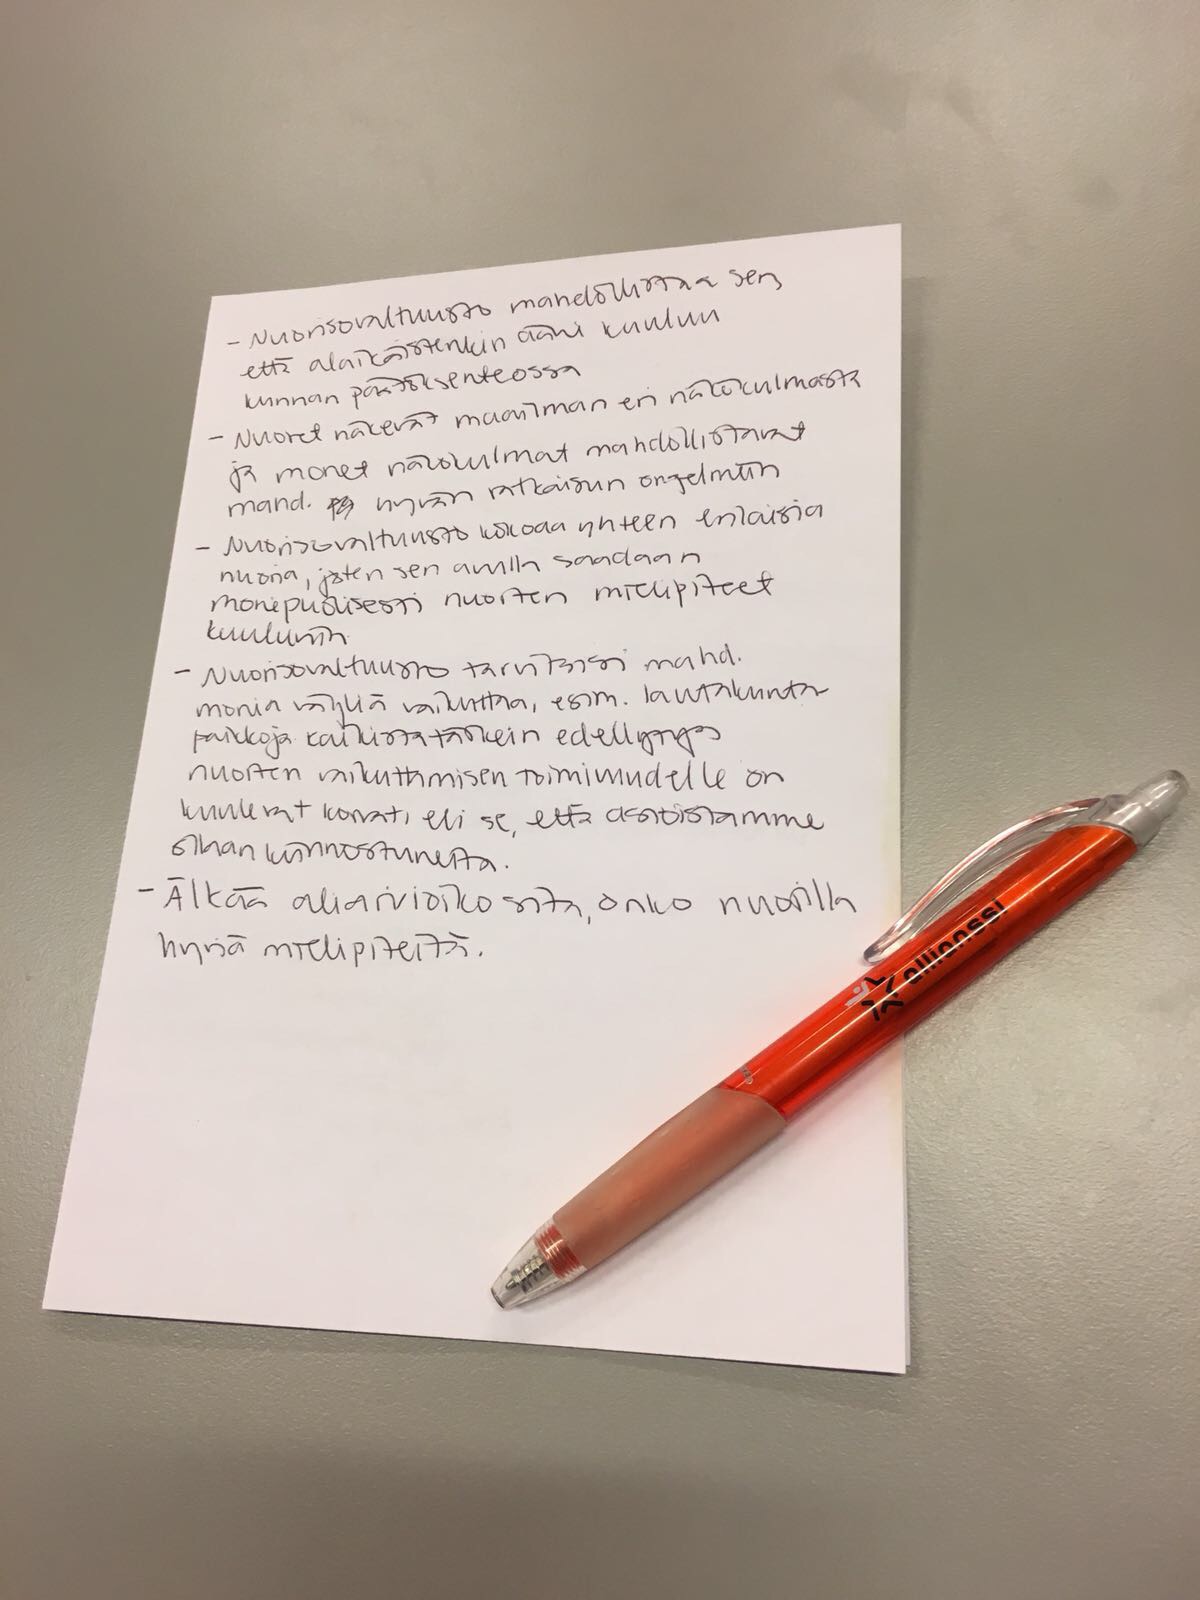 - Nuorisovaltuusto mahdollistaa sen,
että alaikäistenkin ääni kuuluu
kunnan päätöksenteossa
- Nuoret näkevät maailman eri näkökulmasta
ja monet näkökulmat mahdollistavat
mahd. hyvän ratkaisun ongelmiin
- Nuorisovaltuusto kokoaa yhteen erilaisia
nuoria, joten sen avulla saadaan
monipuolisesti nuorten mielipiteet
kuuluviin.
- Nuorisovaltuusto tarvitsisi mahd.
monia väyliä vaikuttaa, esim. lautakunta-
paikkoja. Kaikista tärkein edellytys
nuorten vaikuttamisen toimivuudelle on
kuulevat korvat, eli se, että asioistamme
ollaan kiinnostuneita.
- Älkää aliarvioiko sitä, onko nuorilla
hyviä mielipiteitä.
allianssi